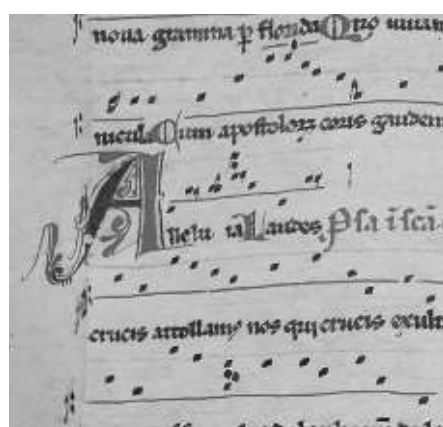 noua gramina p̱ florida Quo uiuan
nicula Cum apostoloꝝ corus gaudent
Alleluia Laudes Psa ī scā
crucis attollamꝰ nos qui crucis exult